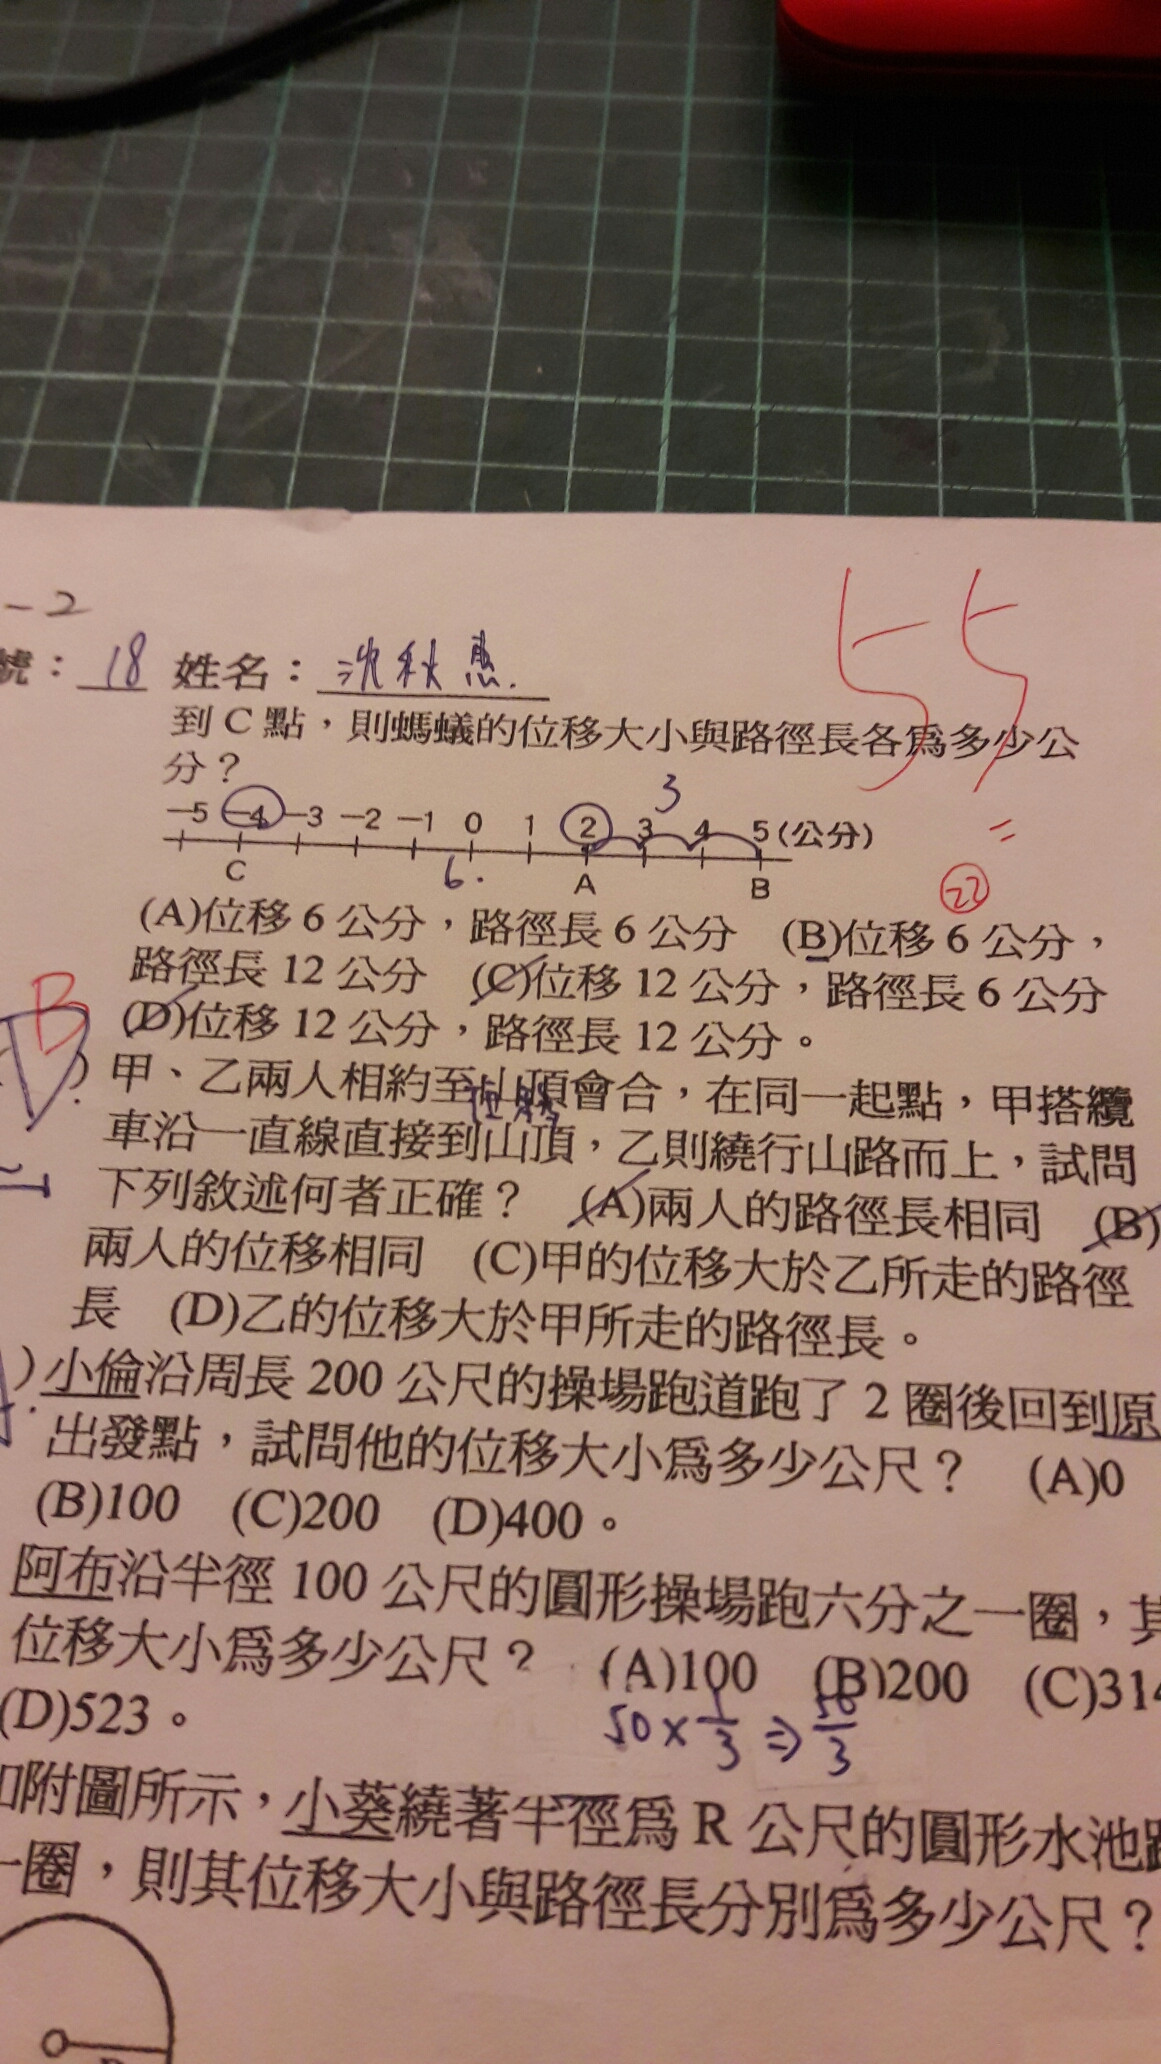 -2
號：18 姓名：沈秋惠.
55
到 C 點，則螞蟻的位移大小與路徑長各為多少公
分？
3
-5 -4 -3 -2 -1 0 1 2 3 4 5 (公分)
C 6. A B
22
(A)位移 6 公分，路徑長 6 公分 (B)位移 6 公分，
路徑長 12 公分 (C)位移 12 公分，路徑長 6 公分
(D)位移 12 公分，路徑長 12 公分。
B
) 甲、乙兩人相約至山頂會合，在同一起點，甲搭纜
車沿一直線直接到山頂，乙則繞行山路而上，試問
下列敘述何者正確？ (A)兩人的路徑長相同 (B)
兩人的位移相同 (C)甲的位移大於乙所走的路徑
長 (D)乙的位移大於甲所走的路徑長。
)小倫沿周長 200 公尺的操場跑道跑了 2 圈後回到原
出發點，試問他的位移大小為多少公尺？ (A)0
(B)100 (C)200 (D)400。
阿布沿半徑 100 公尺的圓形操場跑六分之一圈，其
位移大小為多少公尺？ (A)100 (B)200 (C)314
(D)523。
50×1/3 ⇒ 50/3
如附圖所示，小葵繞著半徑為 R 公尺的圓形水池跑
一圈，則其位移大小與路徑長分別為多少公尺？